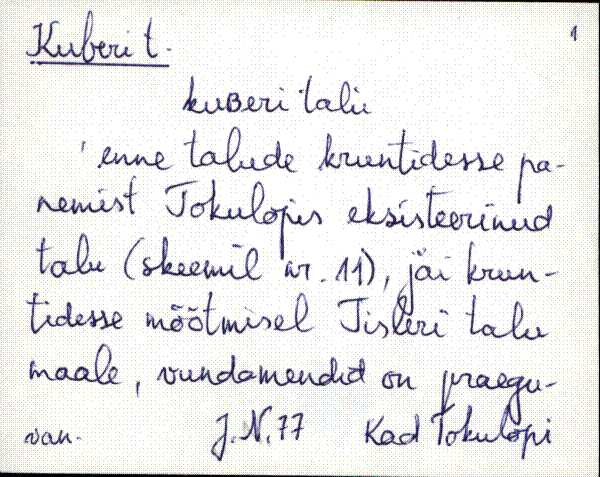 Kuberi t. 1
kuBeri talu
'enne talude kruntidesse pa-
nemist Tokulopis eksisteerinud
talu (skeemil nr. 11), jäi krun-
tidesse mõõtmisel Tisleri talu
maale, vundamendid on praegu-
van. J.N.77 Kad Tokulopi